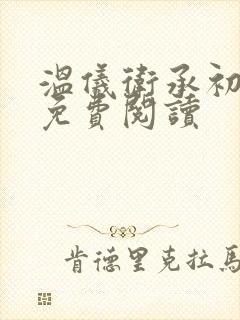 溫儀衛承初
免費閱讀
肯德里克拉馬